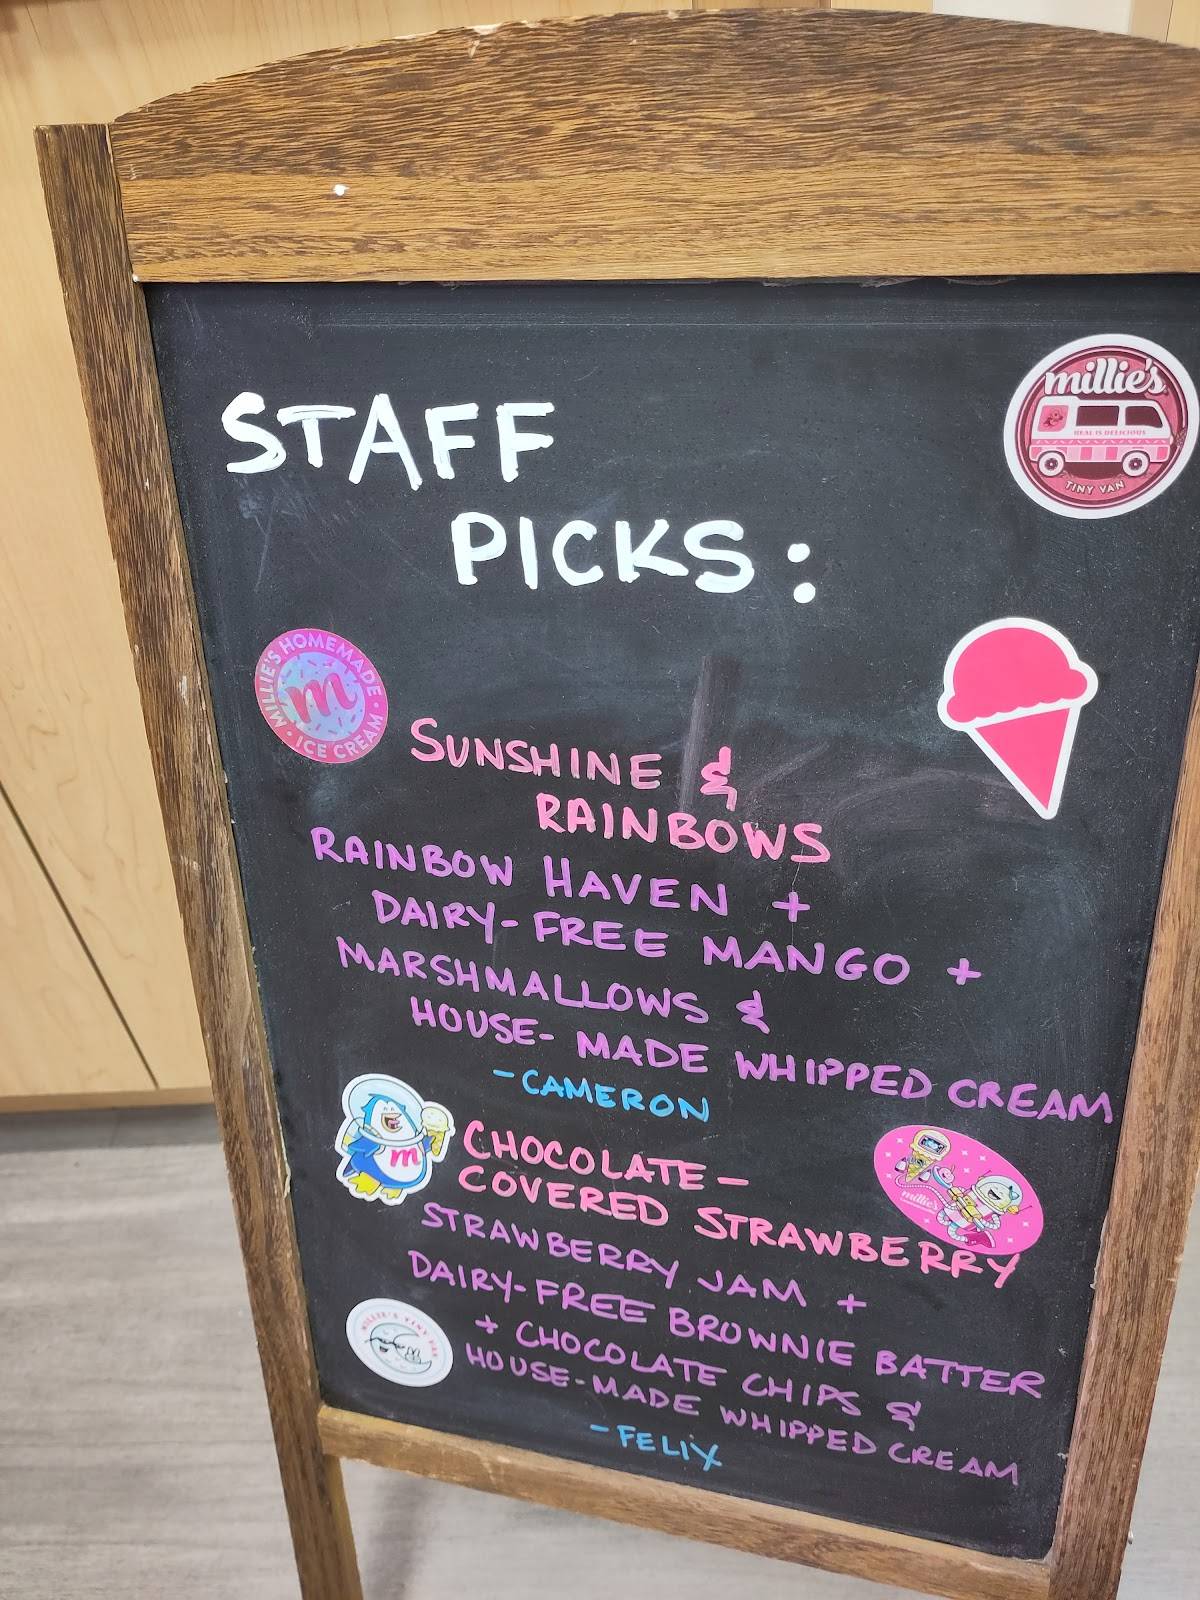 STAFF
PICKS:
millie's
REAL IS DELICIOUS
TINY VAN
MILLIE'S HOMEMADE
m
ICE CREAM
SUNSHINE &
RAINBOWS
RAINBOW HAVEN +
DAIRY-FREE MANGO +
MARSHMALLOWS &
HOUSE-MADE WHIPPED CREAM
-CAMERON
m
CHOCOLATE-
COVERED STRAWBERRY
millie's
STRAWBERRY JAM +
DAIRY-FREE BROWNIE BATTER
+ CHOCOLATE CHIPS &
HOUSE-MADE WHIPPED CREAM
-FELIX
MILLIE'S TINY VAN